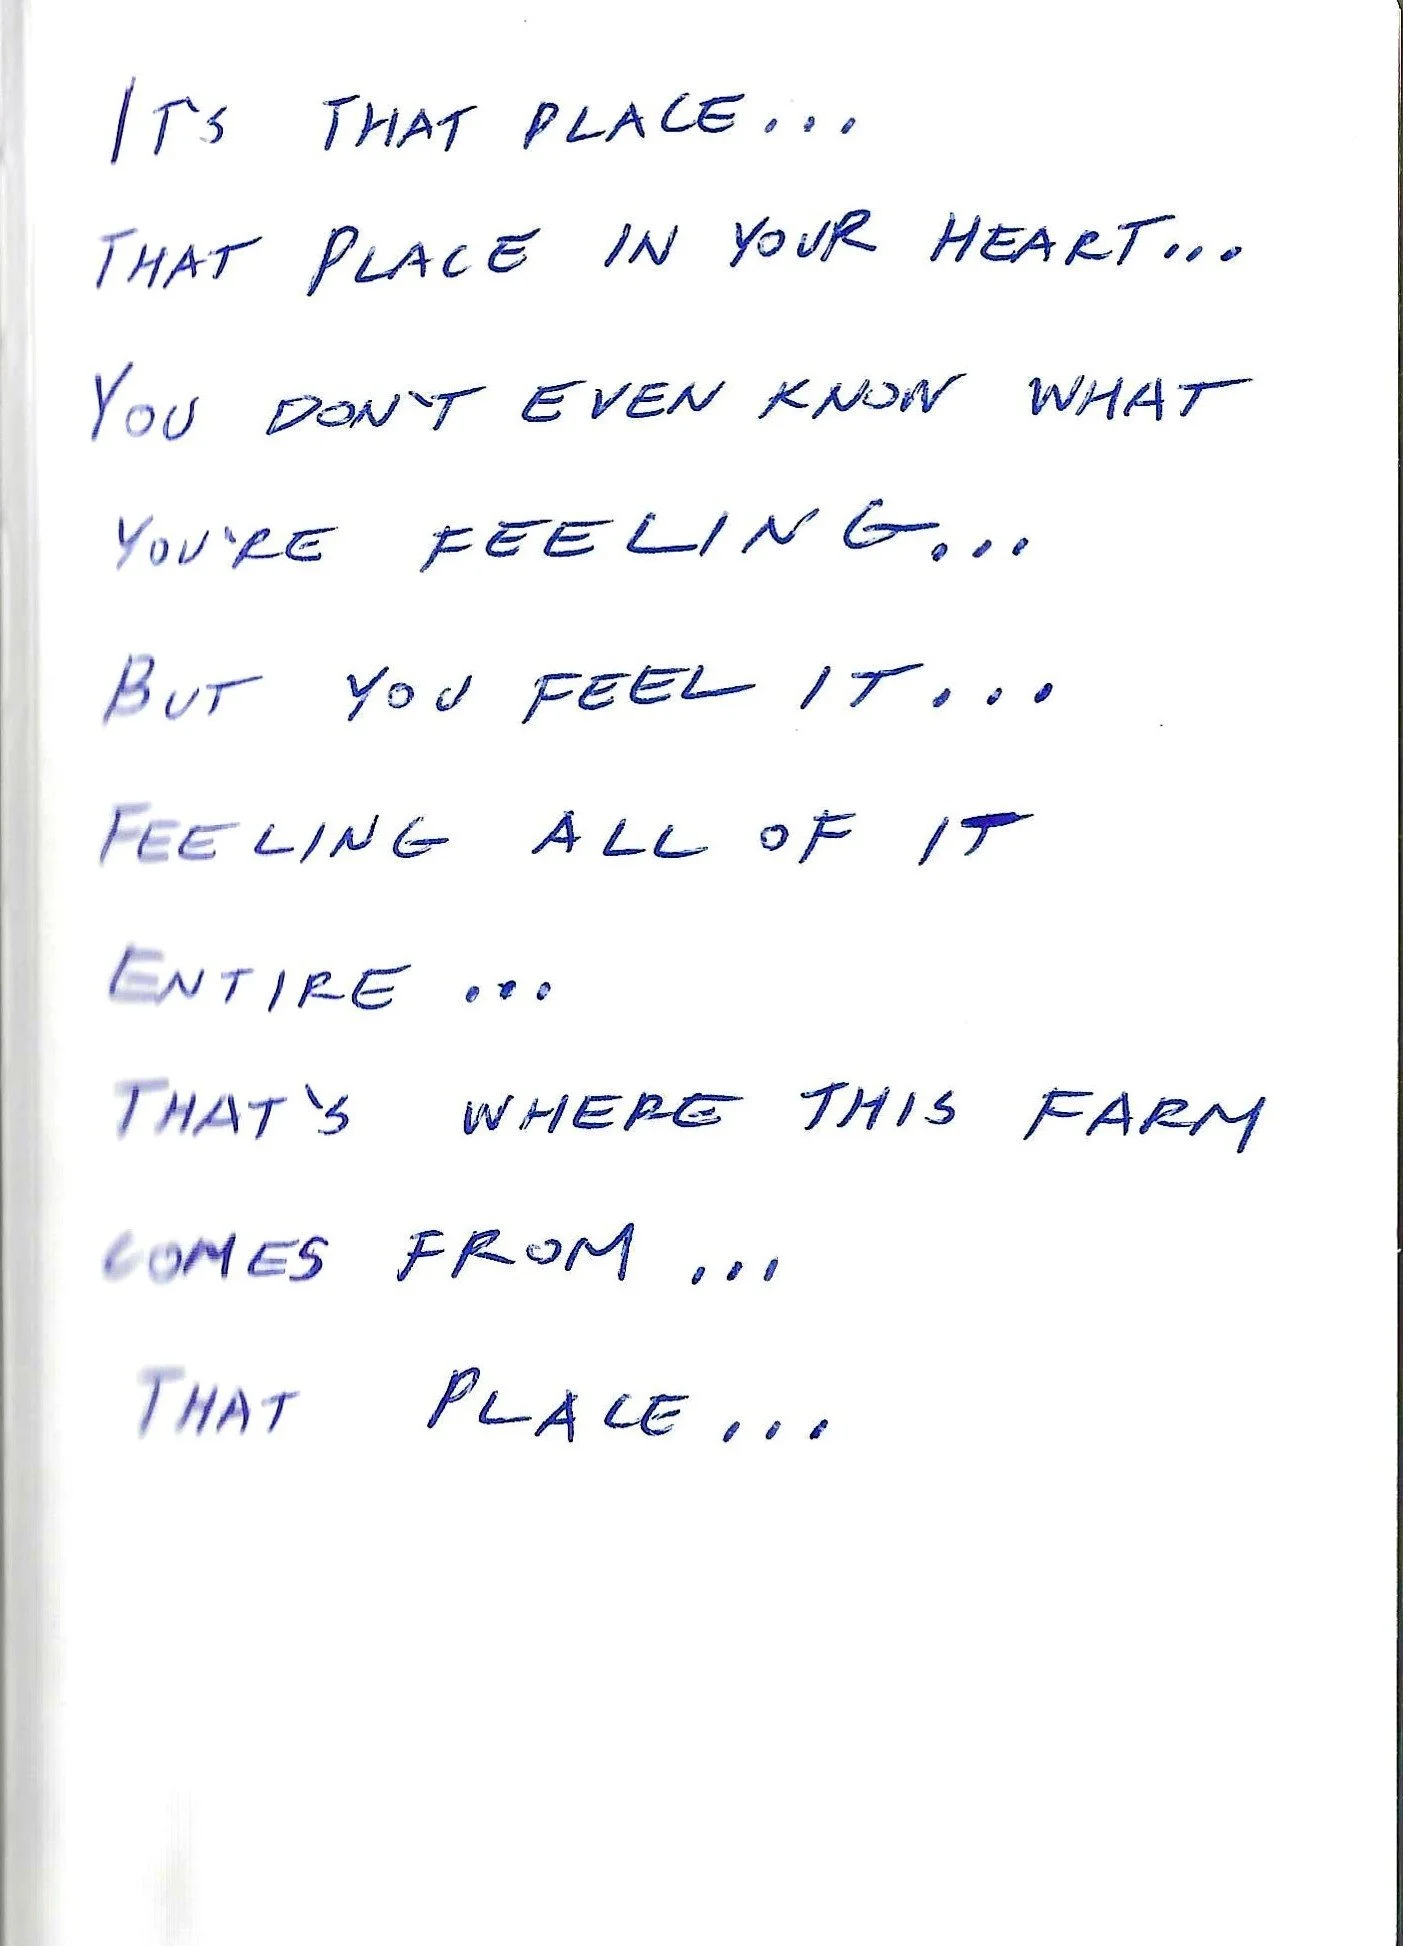 IT'S THAT PLACE...
THAT PLACE IN YOUR HEART...
YOU DON'T EVEN KNOW WHAT
YOU'RE FEELING...
BUT YOU FEEL IT...
FEELING ALL OF IT
ENTIRE...
THAT'S WHERE THIS FARM
COMES FROM...
THAT PLACE...